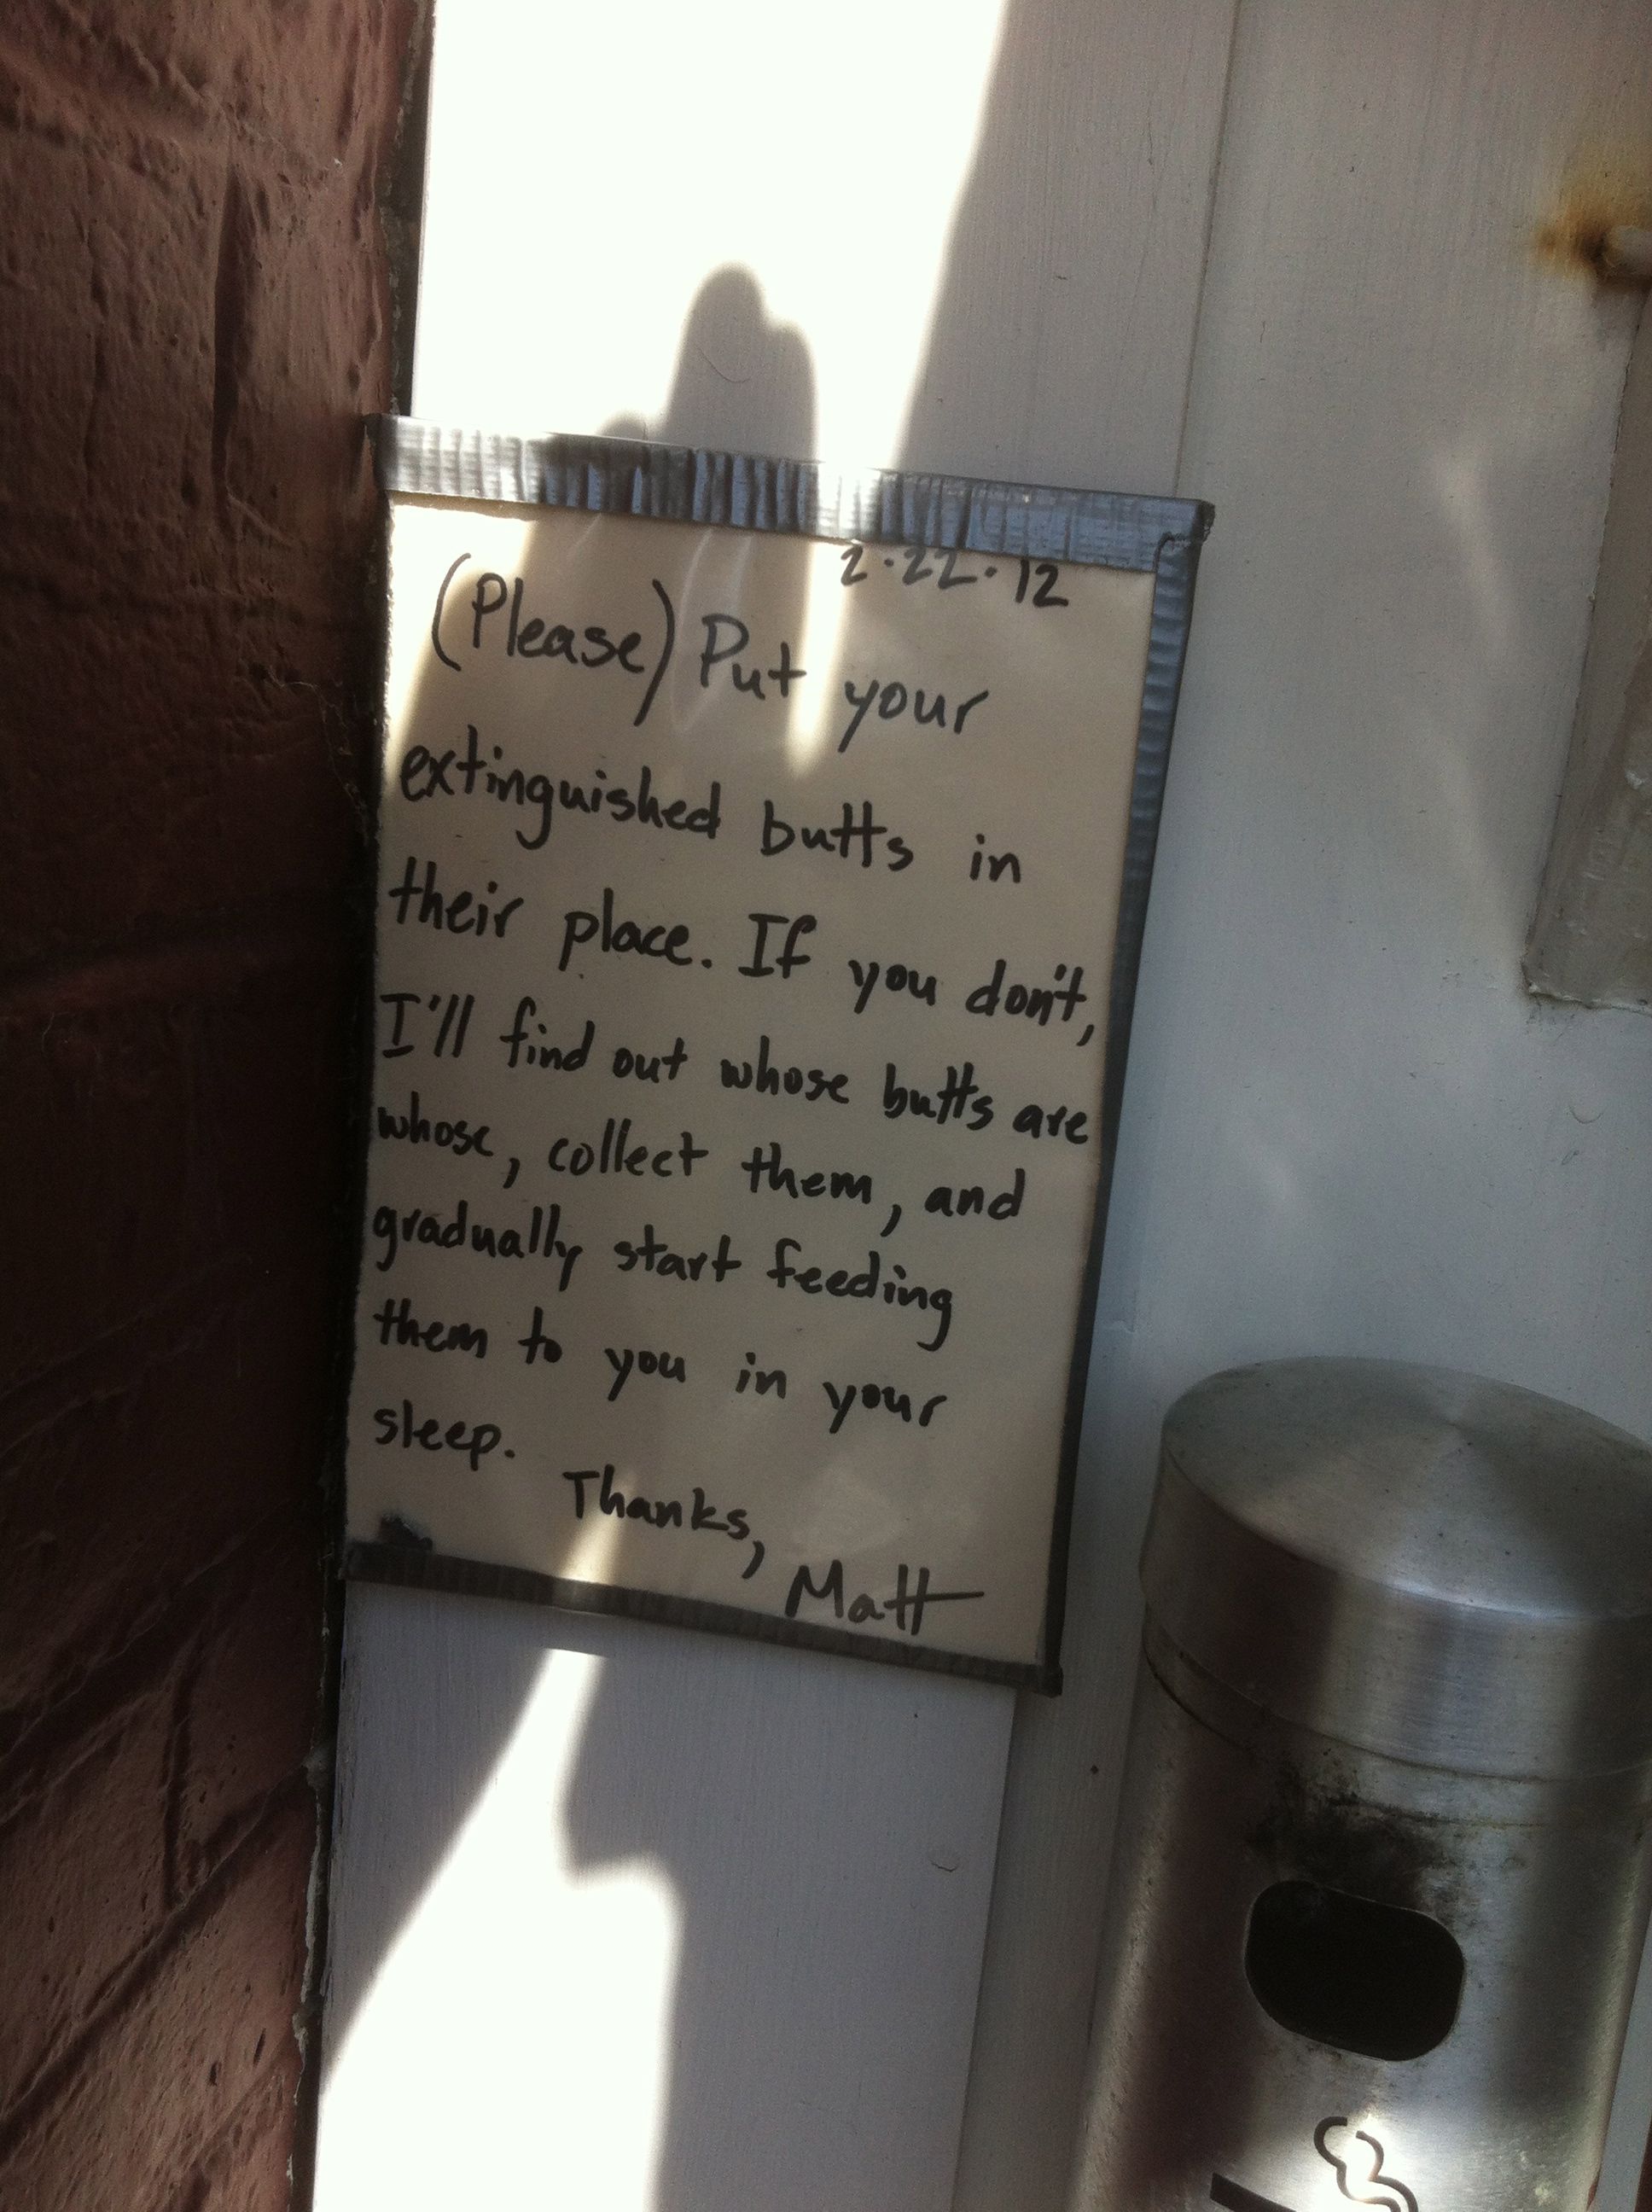 2.22.12
(Please) Put your
extinguished butts in
their place. If you don't,
I'll find out whose butts are
whose, collect them, and
gradually start feeding
them to you in your
sleep.
Thanks,
Matt